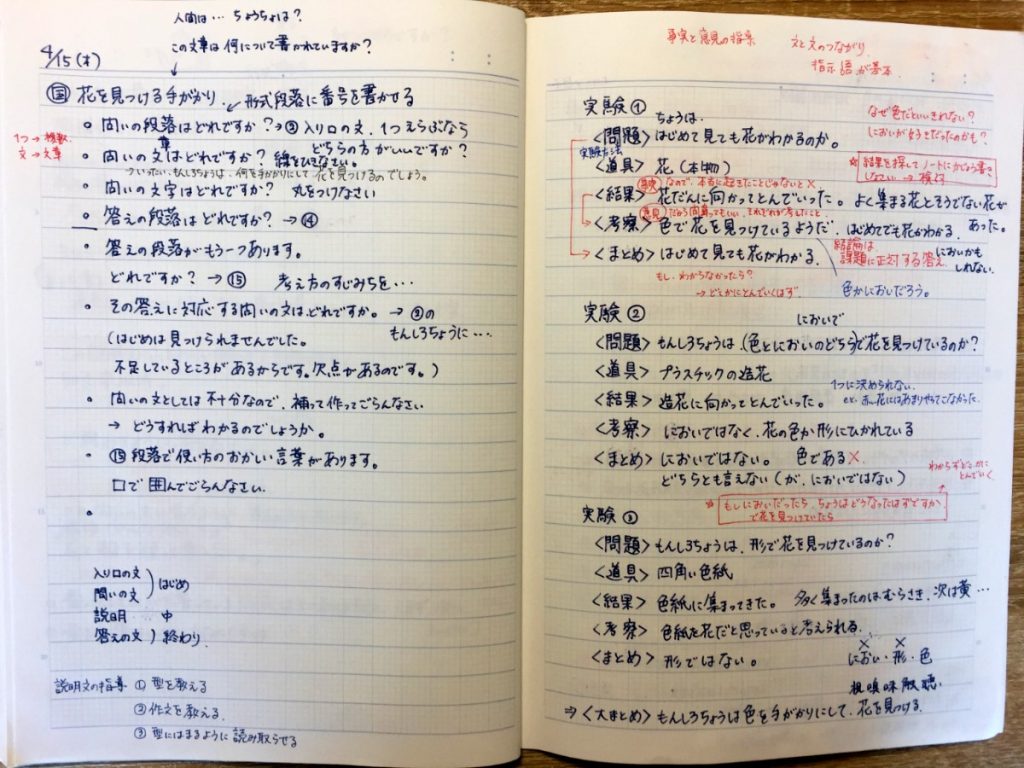 人間は… ちょうちょは?
この文章は何について書かれていますか?
4/15(木)
国 花を見つける手がかり 形式段落に番号を書かせる
1つ→複数
文→文章
・問いの段落はどれですか?→② 入り口の文、1つえらぶなら
どちらの方がいいですか?
・問いの文はどれですか? 線をひきなさい。
章
いったい、もんしろちょうは、何を手がかりにして花を見つけるのでしょう。
・問いの文字はどれですか? 丸をつけなさい
・答えの段落はどれですか? →④
・答えの段落がもう一つあります。
どれですか? →⑮ 考え方のすじみちを…
・その答えに対応する問いの文はどれですか。→②の
もんしろちょうに…
(はじめは見つけられませんでした。
不足しているところがあるからです。欠点があるのです。)
・問いの文としては不十分なので、補って作ってごらんなさい
→ どうすればわかるのでしょうか。
・⑮段落で使い方のおかしい言葉があります。
□で囲んでごらんなさい。
・
入り口の文
問いの文 ) はじめ
説明 … 中
答えの文 ) 終わり
説明文の指導 ① 型を教える
② 作文を教える
③ 型にはまるように読み取らせる
事実と意見の指導 文と文のつながり
指示語が基本
実験①
ちょうは、
<問題>はじめて見ても花がわかるのか。
実験方法
なぜ色だといいきれない?
においが好きだったのかも?
<道具>花(本物)
※ 結果を探してノートにかじょう書き
しなさい → 検討
事実 なので、本当に起きたことじゃないと×
<結果>花だんに向かってとんでいった。よく集まる花とそうでない花が
あった。
意見 だから間違ってもいい、それぞれが考えたこと
<考察>色で花を見つけているようだ、はじめてでも花がわかる、
結論は
課題に正対する答え
においかも
しれない。
<まとめ>はじめて見ても花がわかる、
もし、わからなかったら?
→ どこかにとんでいくはず
色かにおいだろう。
実験②
においで
<問題>もんしろちょうは、(色とにおいのどちら)で花を見つけているのか?
<道具>プラスチックの造花
1つに決められない。
<結果>造花に向かってとんでいった。
ex. 赤い花にはあまりやってこなかった。
<考察>においではなく、花の色か形にひかれている
<まとめ>においではない。 色である×
どちらとも言えない(が、においではない)
わからずどこかに
とんでいく
※ もしにおいだったら、ちょうはどうなったはずですか
で花を見つけていたら
実験③
<問題>もんしろちょうは、形で花を見つけているのか?
<道具>四角い色紙
<結果>色紙に集まってきた。 多く集まったのはむらさき、次は黄…
<考察>色紙を花だと思っていると考えられる、
<まとめ>形ではない。
× ×
におい・形・色
視嗅味触聴
⇒<大まとめ>もんしろちょうは色を手がかりにして、花を見つける。